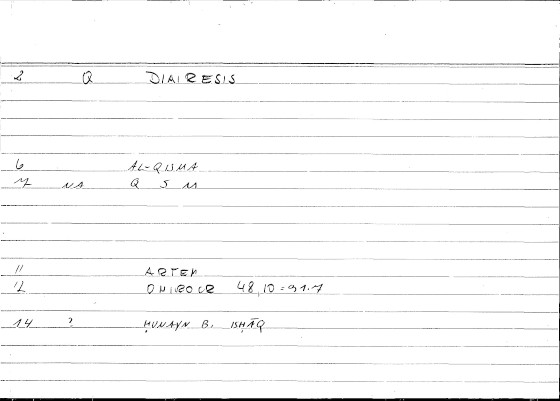 2 Q DIAIRESIS
6 AL-QISMA
7 NA Q S M
11 ARTEM
12 ONIROCR 48,10 = 91.7
14 ? ḤUNAYN B. ISḤĀQ